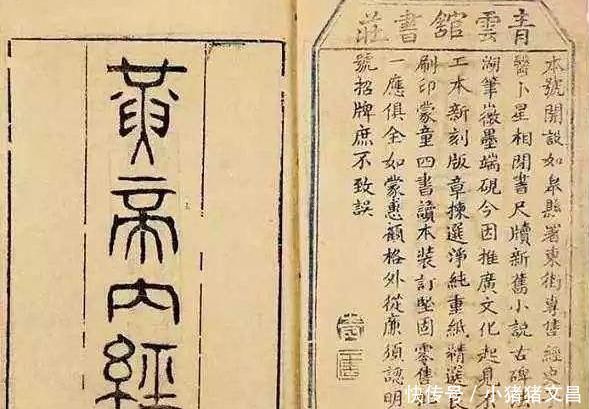 青雲館書莊
本號開設如皋縣署東街專售經史
醫卜星相閒書尺牘新舊小說古碑
湖筆徽墨端硯今因推廣文化起見
工本新刻版章揀選淨純重紙精選
刷印蒙童四書讀本裝訂堅固零售
一應俱全如蒙惠顧格外從廉須認明
號招牌庶不致誤
黃帝內經
快传号 / 小猪猪文昌